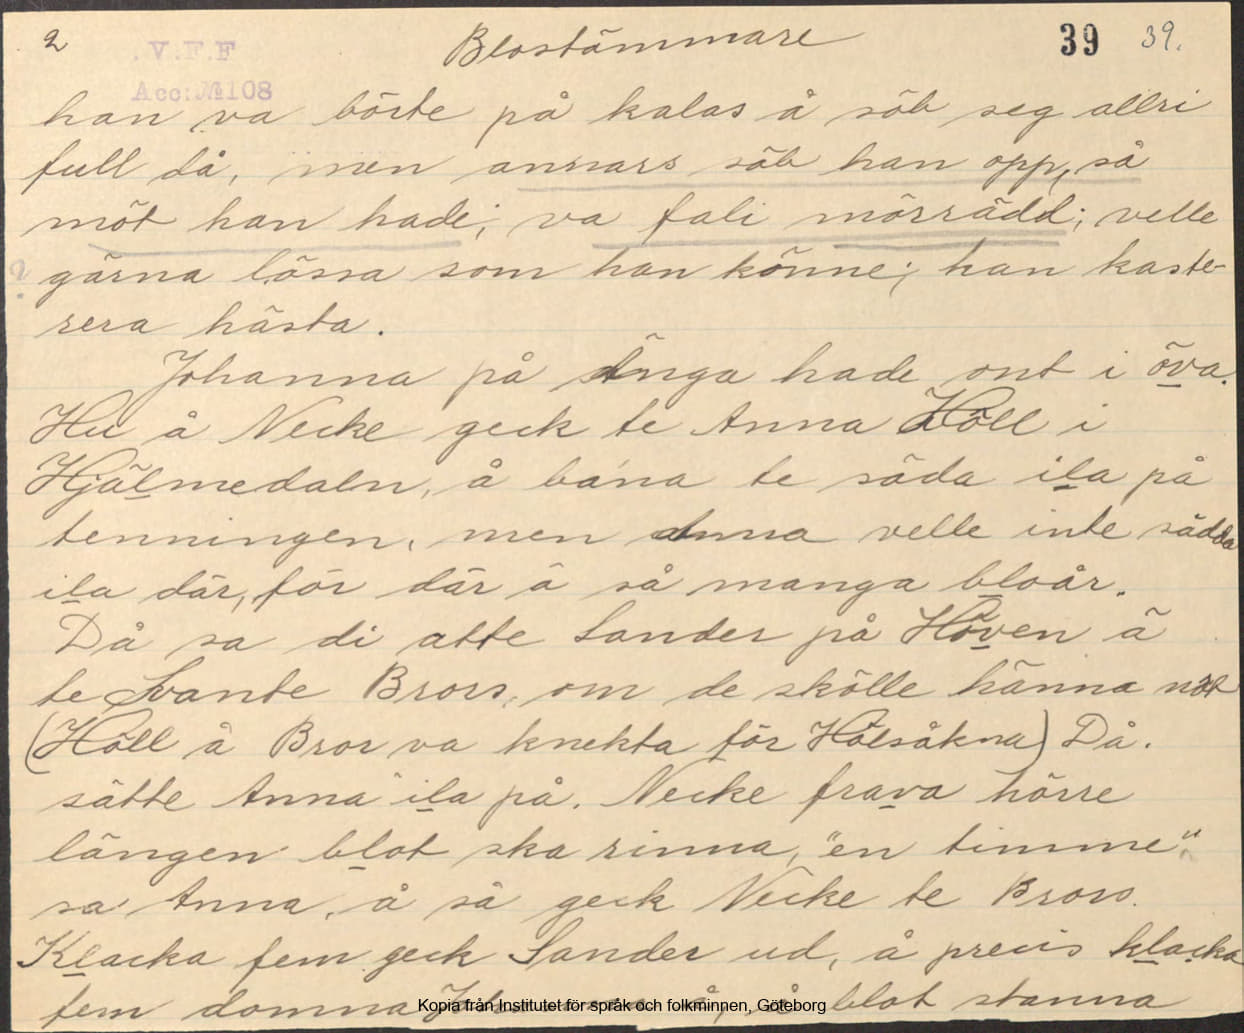 2 Blostämmare 39 39.
V.F.F
Acc: M108
han va börte på kalas å söb seg allri
full då, men annars söb han opp, så
möt han hade; va fali mörrädd; velle
gärna lässa som han könne; han kaste-
rera hästa.
Johanna på Änga hade ont i öva.
Hu å Necke geck te Anna Höll i
Hjälmedaln, å bána te säda ila på
tenningen, men Anna velle inte sädda
ila där, för där ä så manga bloår.
Då sa di atte Sander på Höven ä
te Svante Brors, om de skölle hänna nöt
(Höll å Bror va knekta för Hölsåkna) Då.
sätte Anna ila på. Necke frava hörre
längen blot ska rinna, "en timme"
sa Anna, å så geck Necke te Brors.
Klacka fem geck Sander ud, å precis klacka
fem domna å, å blot stanna
Kopia från Institutet för språk och folkminnen, Göteborg